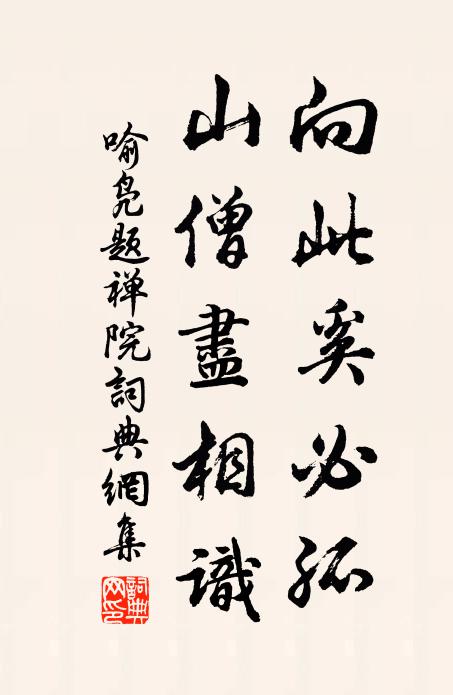 向此奚必孤
山僧盡相識
喻凫题禅院詞典網集
詞典網印